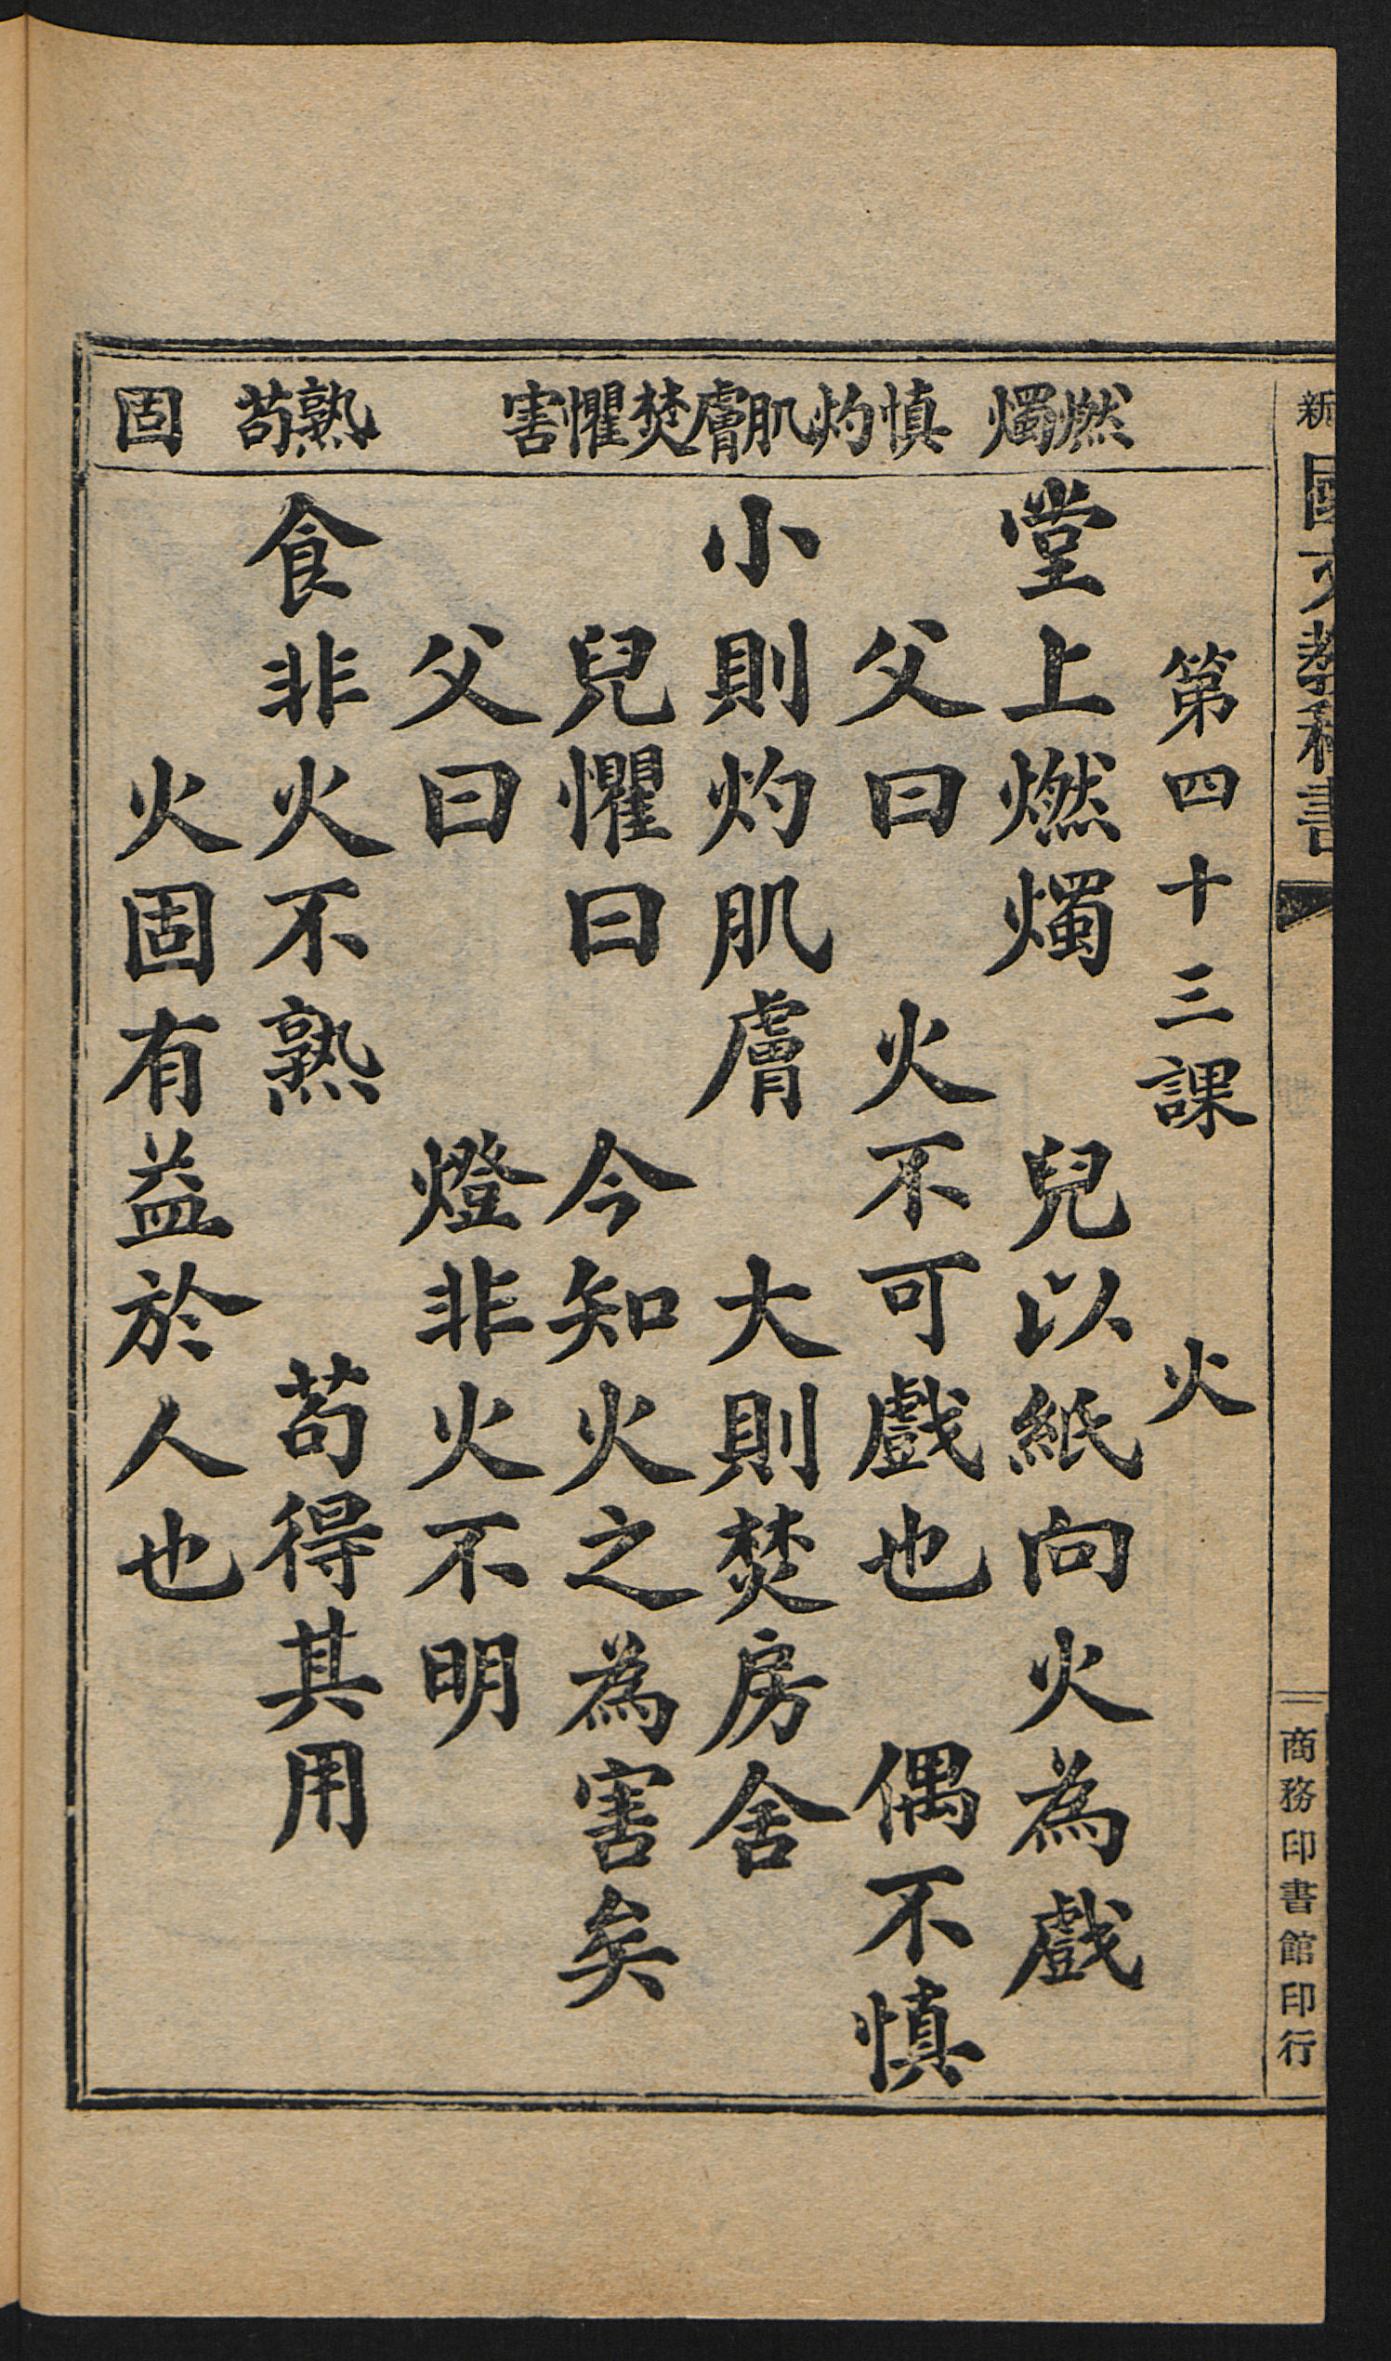 新國文教科書
商務印書館印行
燃燭 慎灼肌膚焚懼害 熟苟 固
第四十三課 火
堂上燃燭 兒以紙向火為戲
父曰 火不可戲也 偶不慎
小則灼肌膚 大則焚房舍
兒懼曰 今知火之為害矣
父曰 燈非火不明
食非火不熟 苟得其用
火固有益於人也